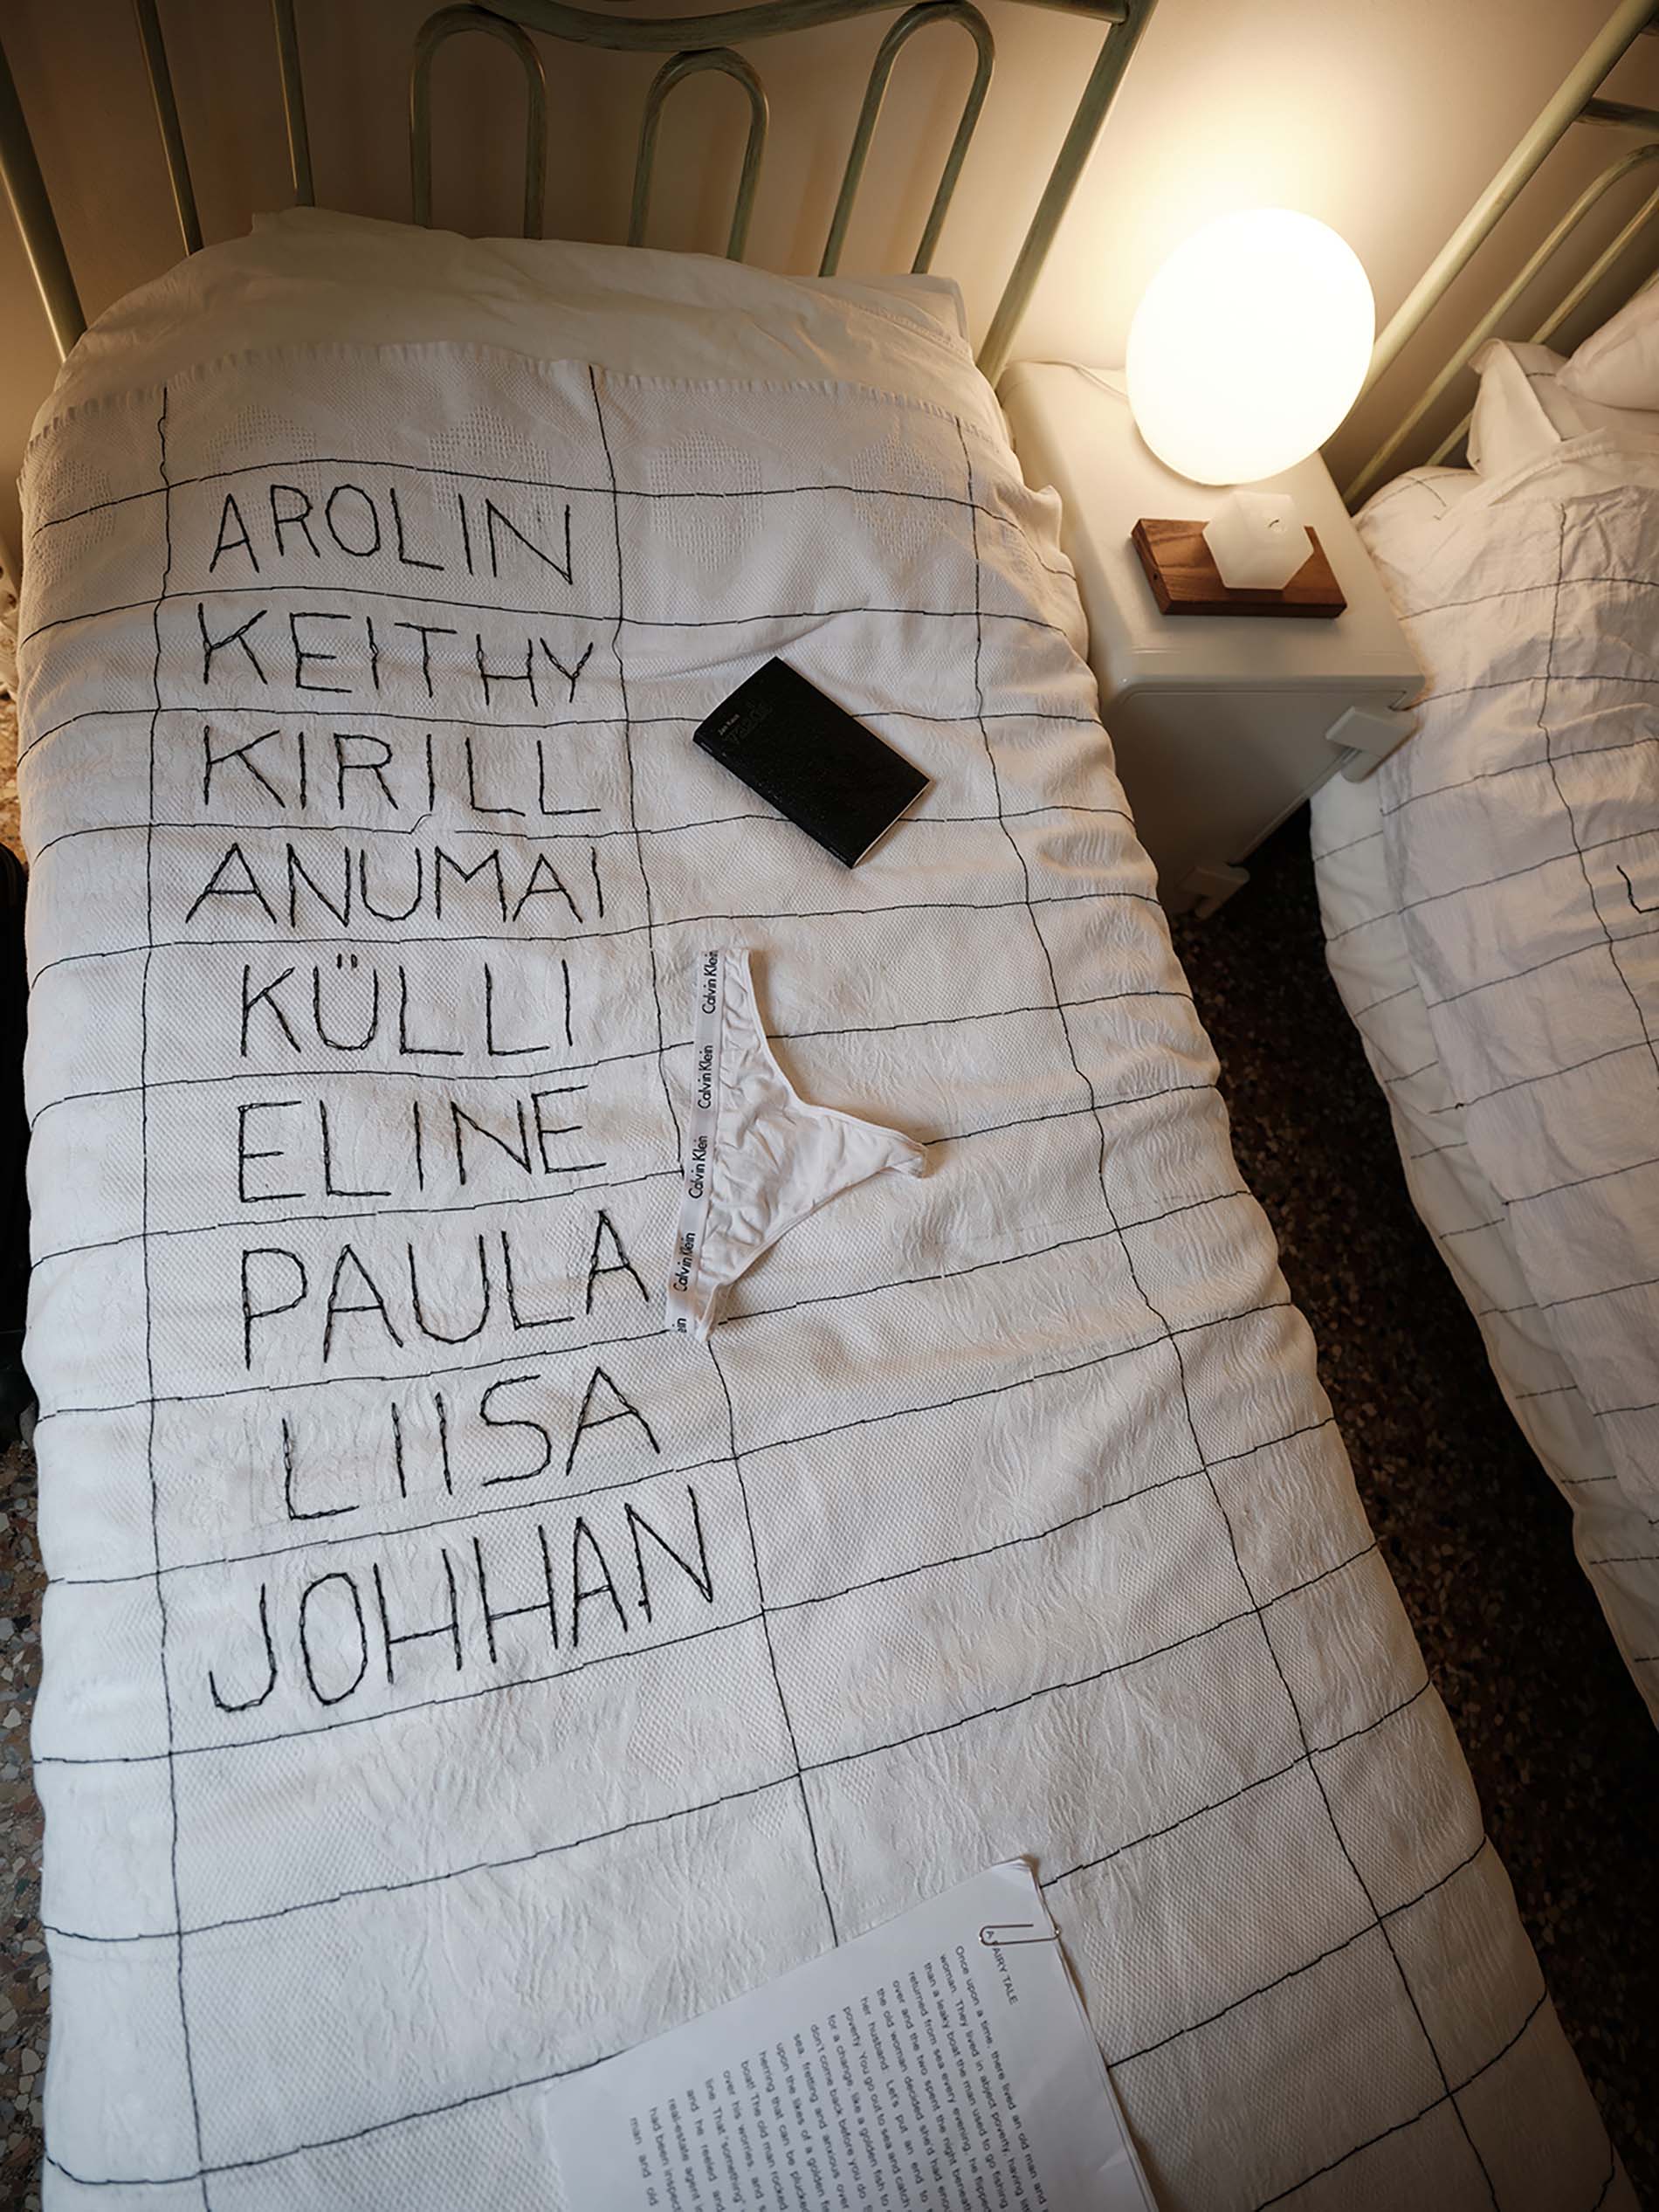 AROLIN
KEITHY
KIRILL
ANUMAI
KÜLLI
ELINE
PAULA
LIISA
JOHHAN
Calvin Klein
Calvin Klein
Calvin Klein
Calvin Klein
ein
A FAIRY TALE
Once upon a time, there lived an old man and
woman. They lived in abject poverty, having
than a leaky boat the man used to go fishing
returned from sea every evening, he flipped
over and the two spent the night beneath
the old woman decided she'd had
her husband. Let's put an end to
poverty. You go out to sea and catch
for a change, like a golden fish
don't come back before you do
sea, fretting and anxious over
upon the likes of a golden
herring that can be
boat! The old man rocked
over his worries, and
line. That "something"
and he reeled and
real-estate agent
had been
man and old